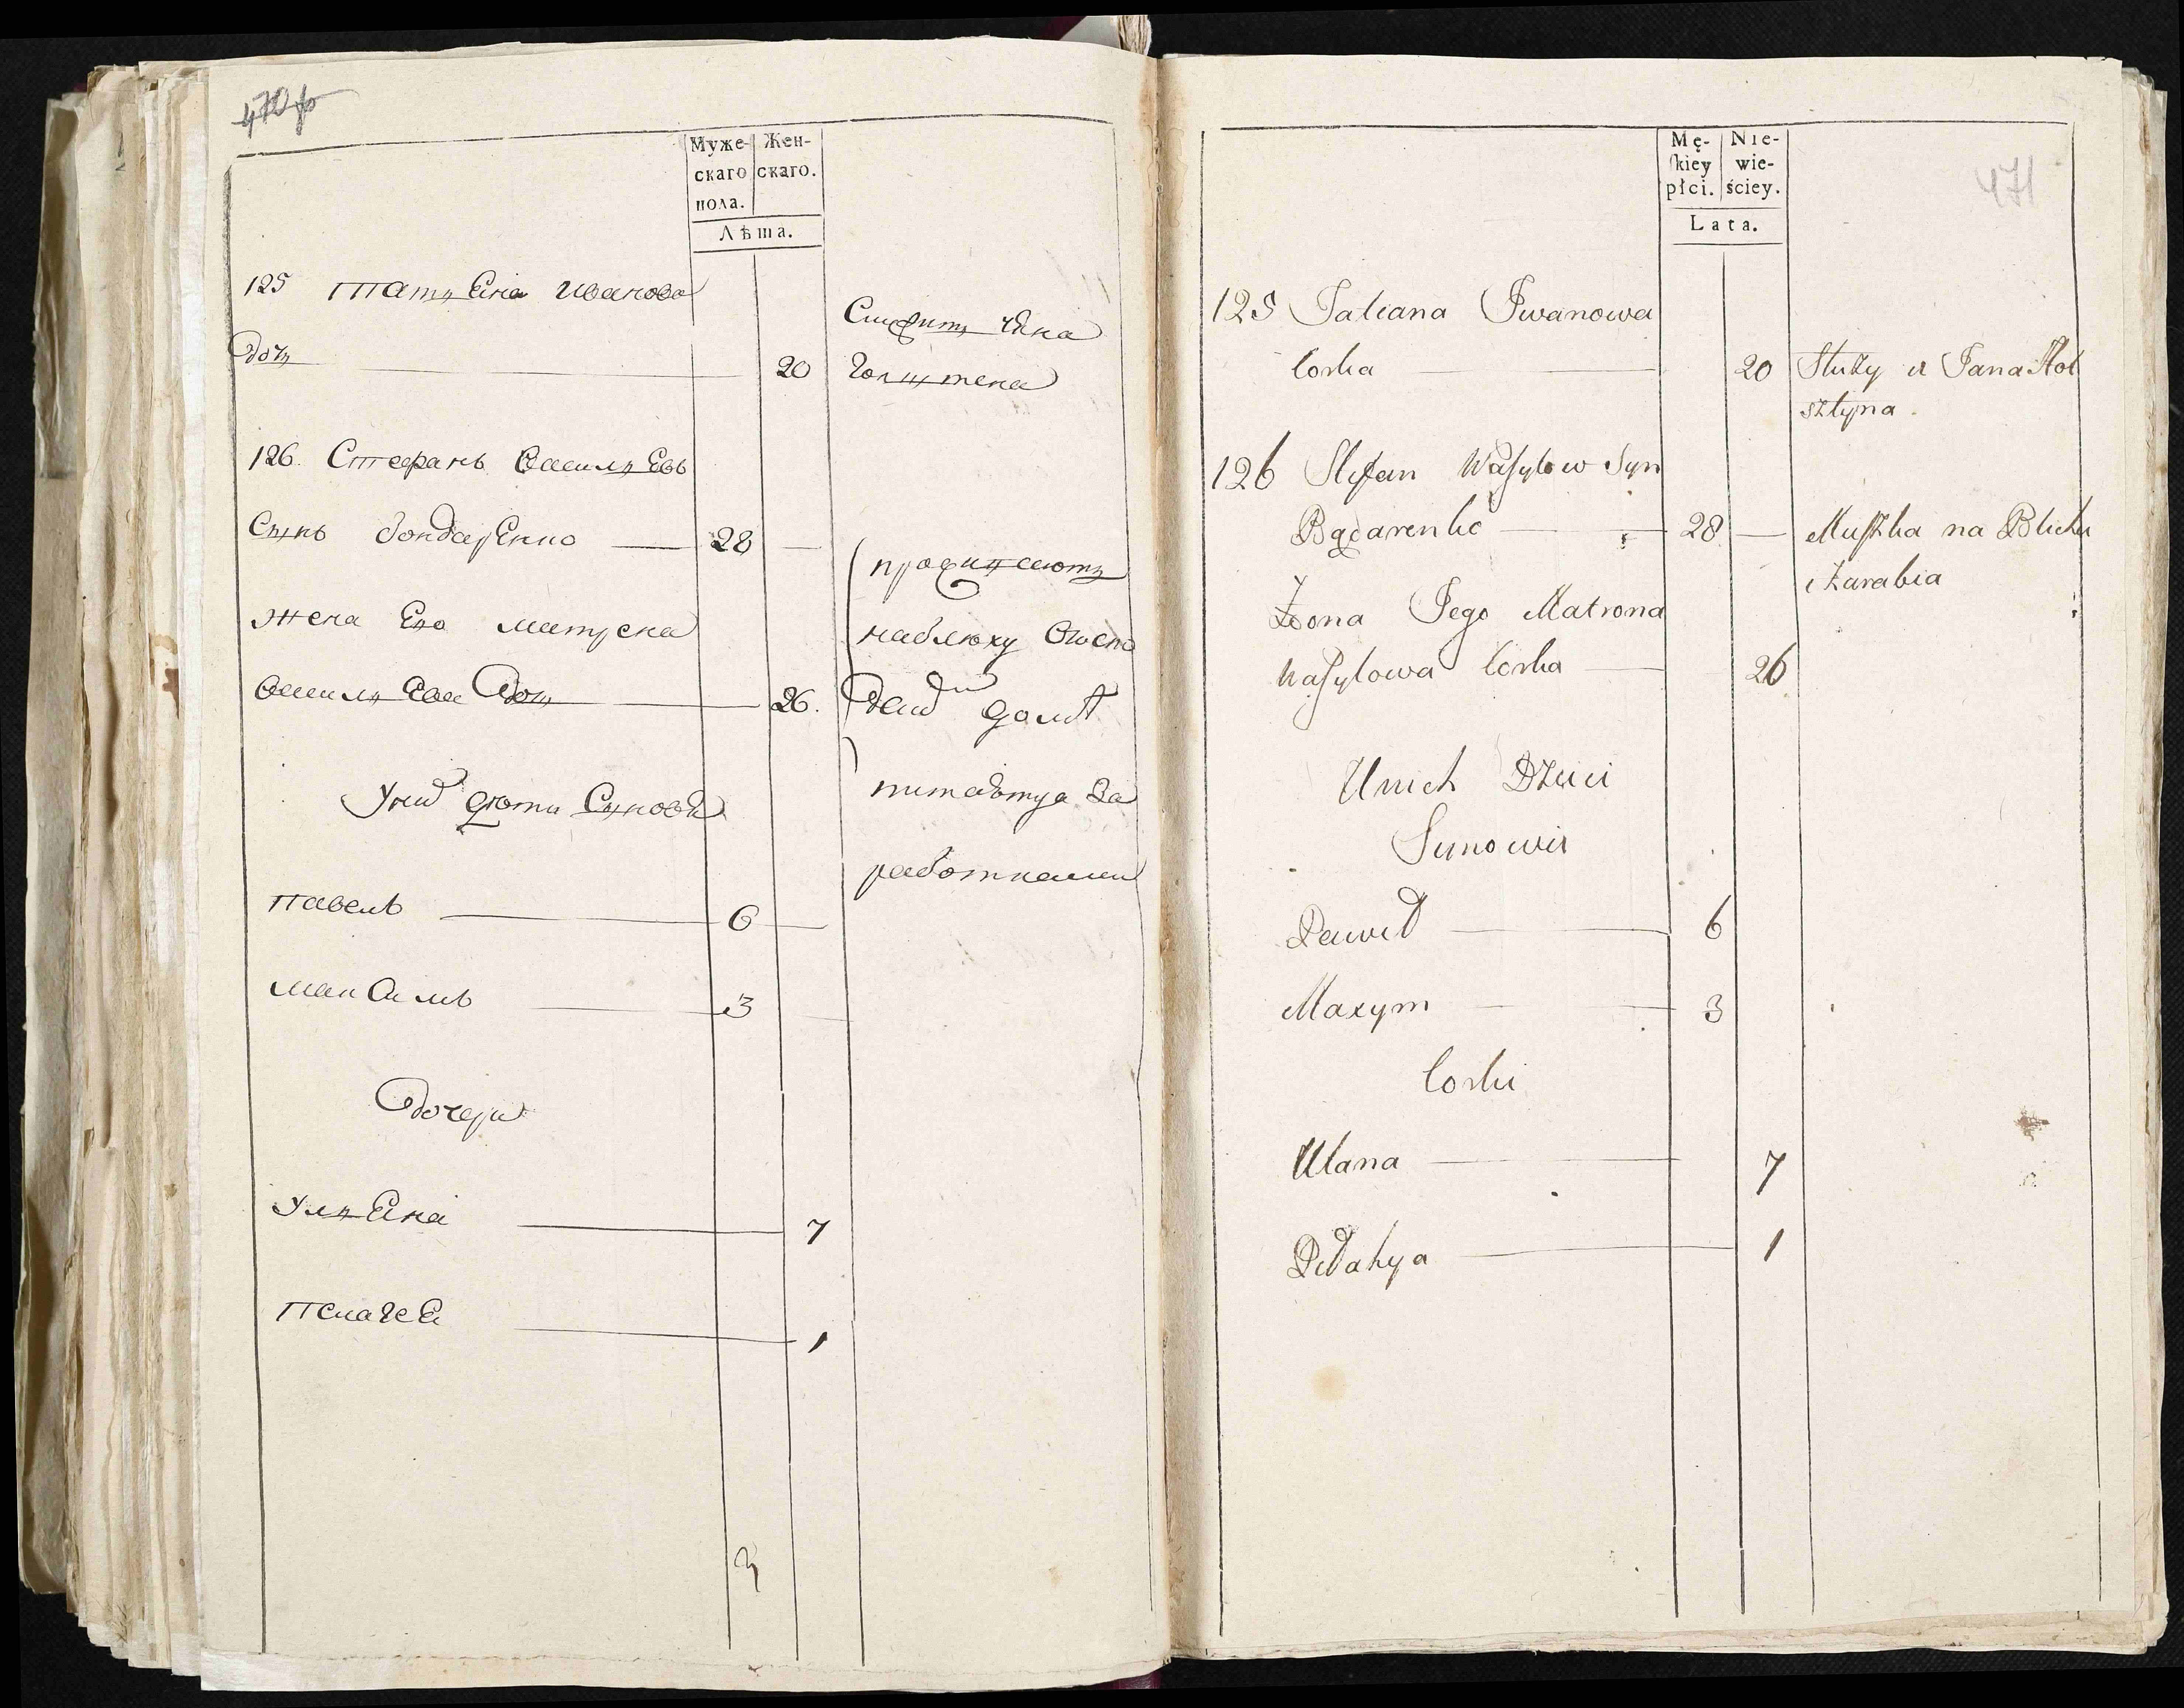 470 ф
Муже-
скаго
пола.
Жен-
скаго.
Лѣта.
125 Татьяна Иванова
дочь 20
Служитъ упана
Голштена
126. Стефанъ Василъевъ
Сынъ бондаренко 28
жена Его матрена
Василъева дочь 26.
проживаютъ
наблюху
питаютца за
работками
Уних дѣти Сыновя
Павелъ 6
Максимъ 3
Дочери
Улъяна 7
Пелагея 1
471
Mę-
skiey
płci.
Nie-
wie-
ściey.
Lata.
125 Tatiana Iwanowa
Corka 20 Służy u Pana Hol
sztyna.
126 Stefan Wasylow Syn
Bądarenko 28 Muszka na Blichu
Zarabia
Żona Jego Matrona
Wasylowa Corka 26
Unich Dzieci
Sunowie
Paweł 6
Maxym 3
Corki
Ulana 7
Pelahya 1